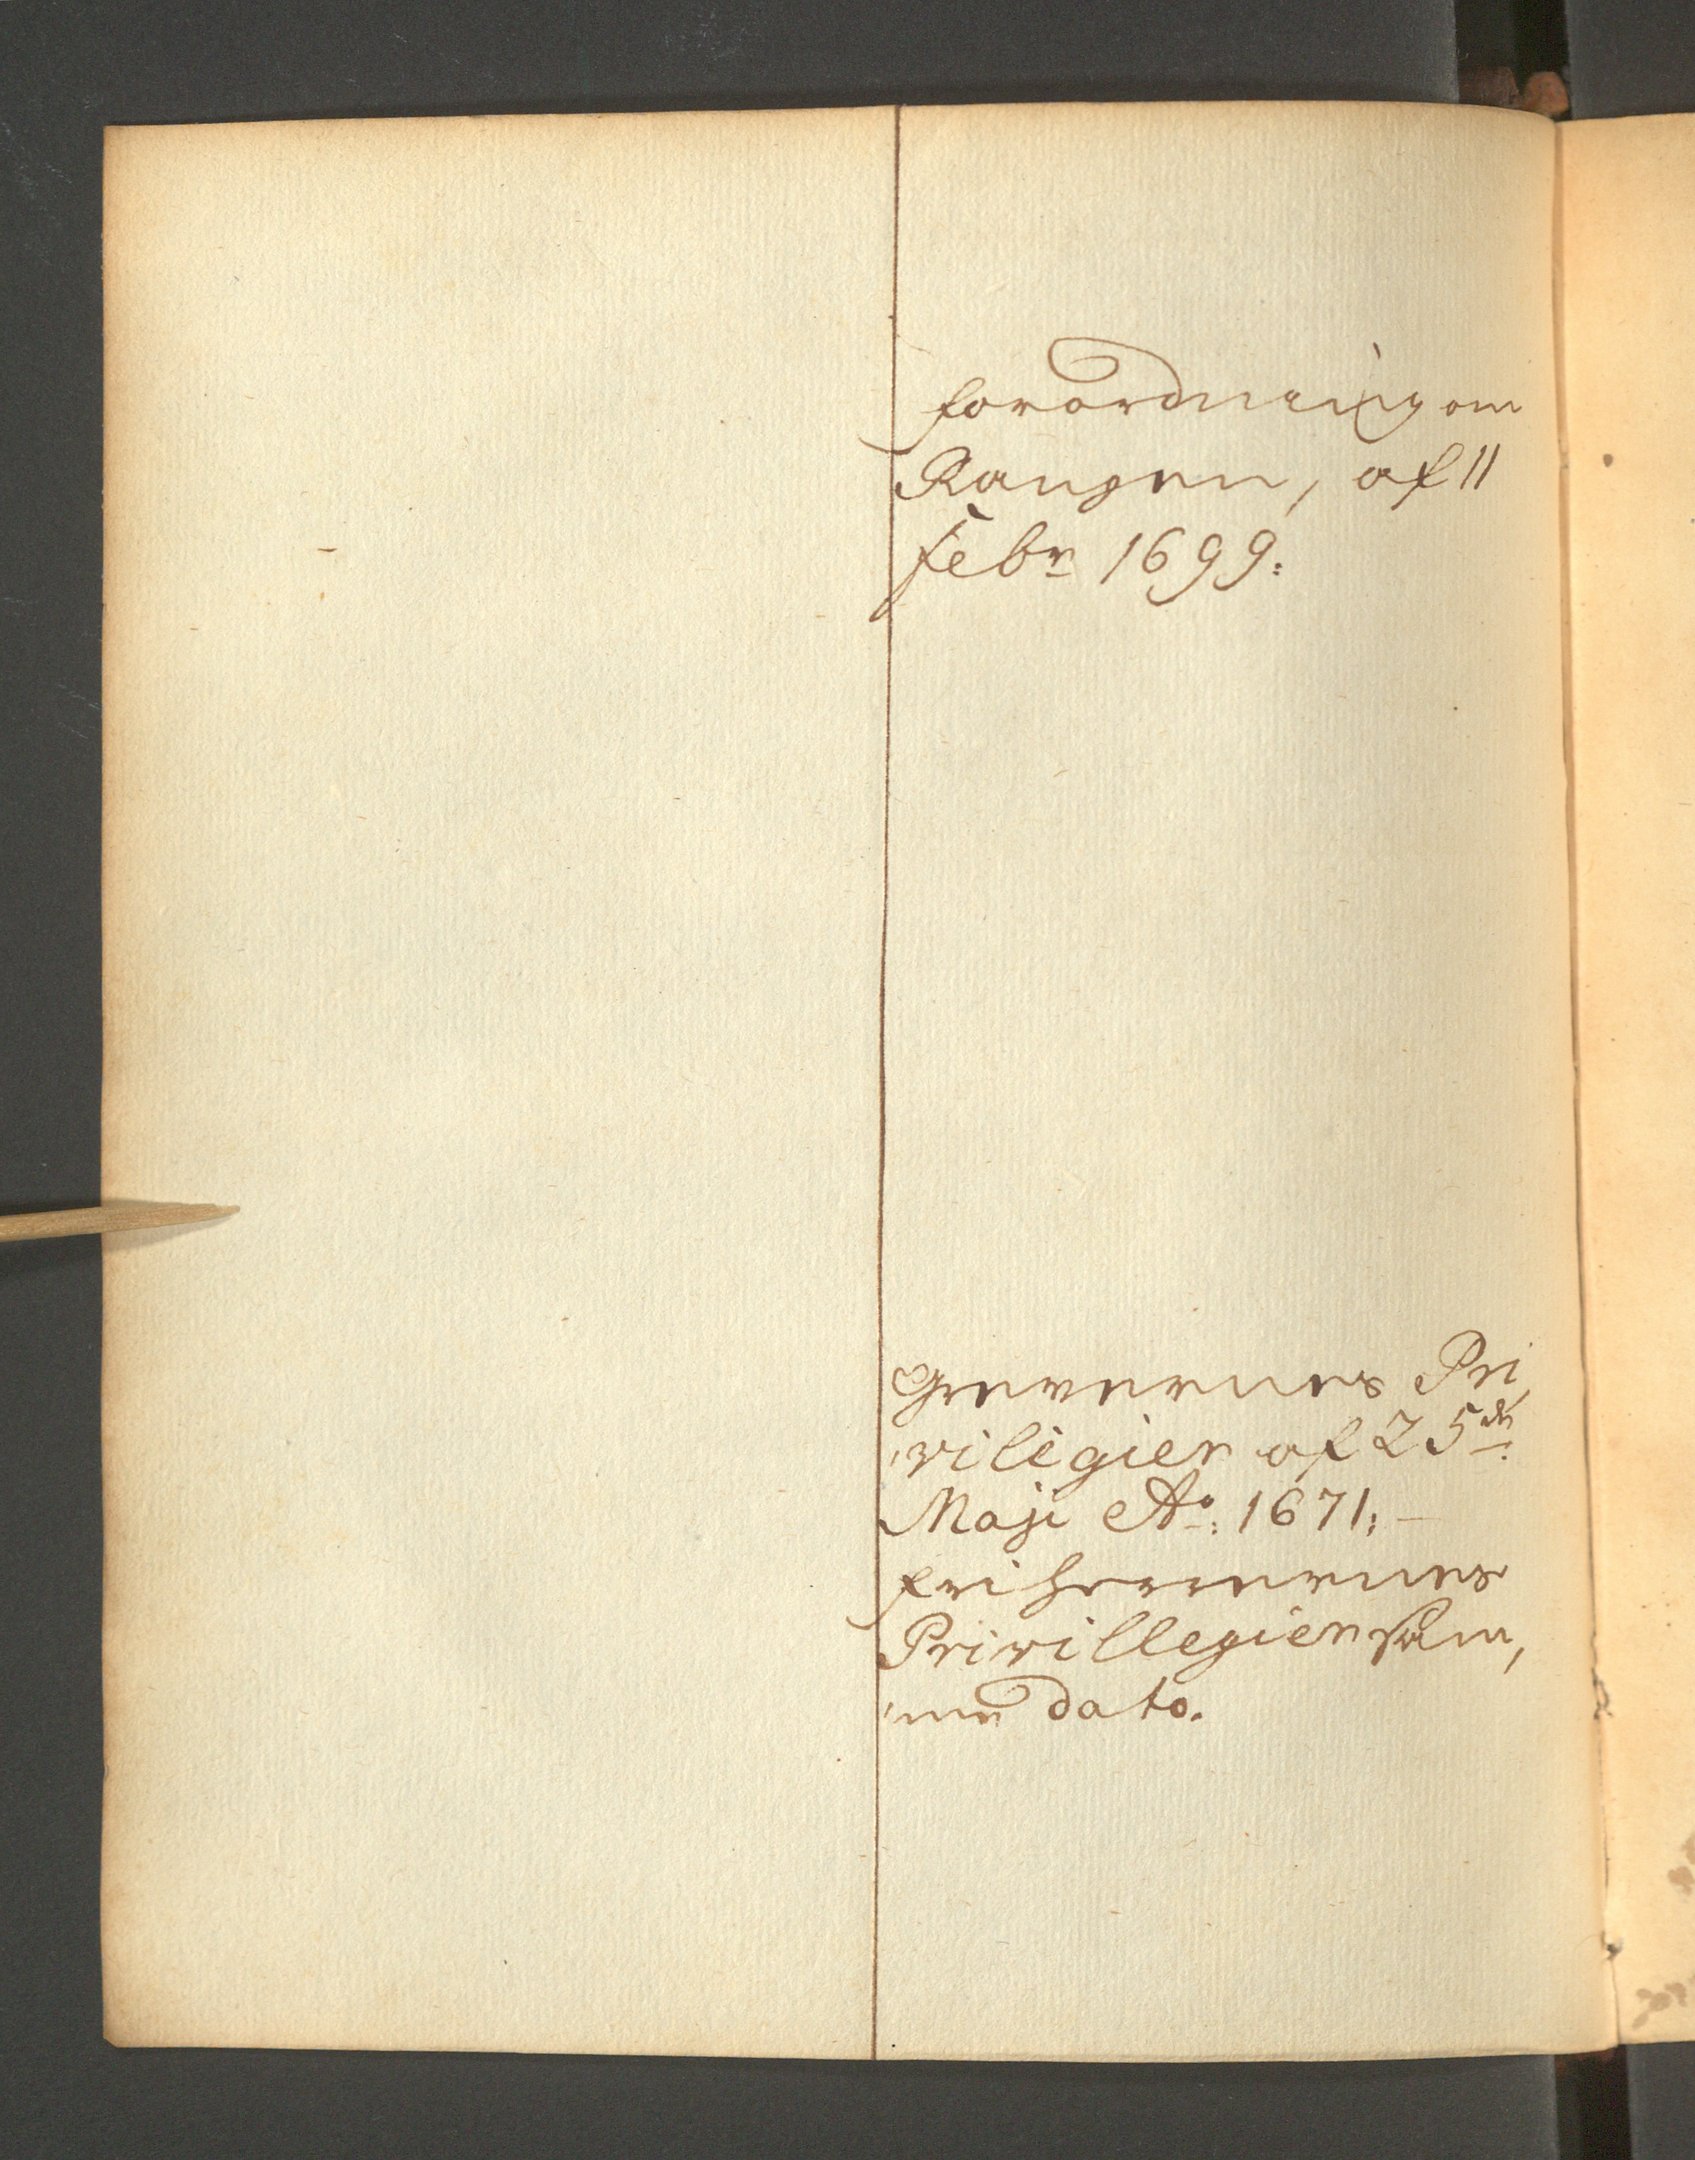 Forordning om
Rangen, af 11
Febr 1699.
Grevernes Pri
viligier af 25de
Maji Ao: 1671:
Friherrernes
Privillegier sam,
me dato.